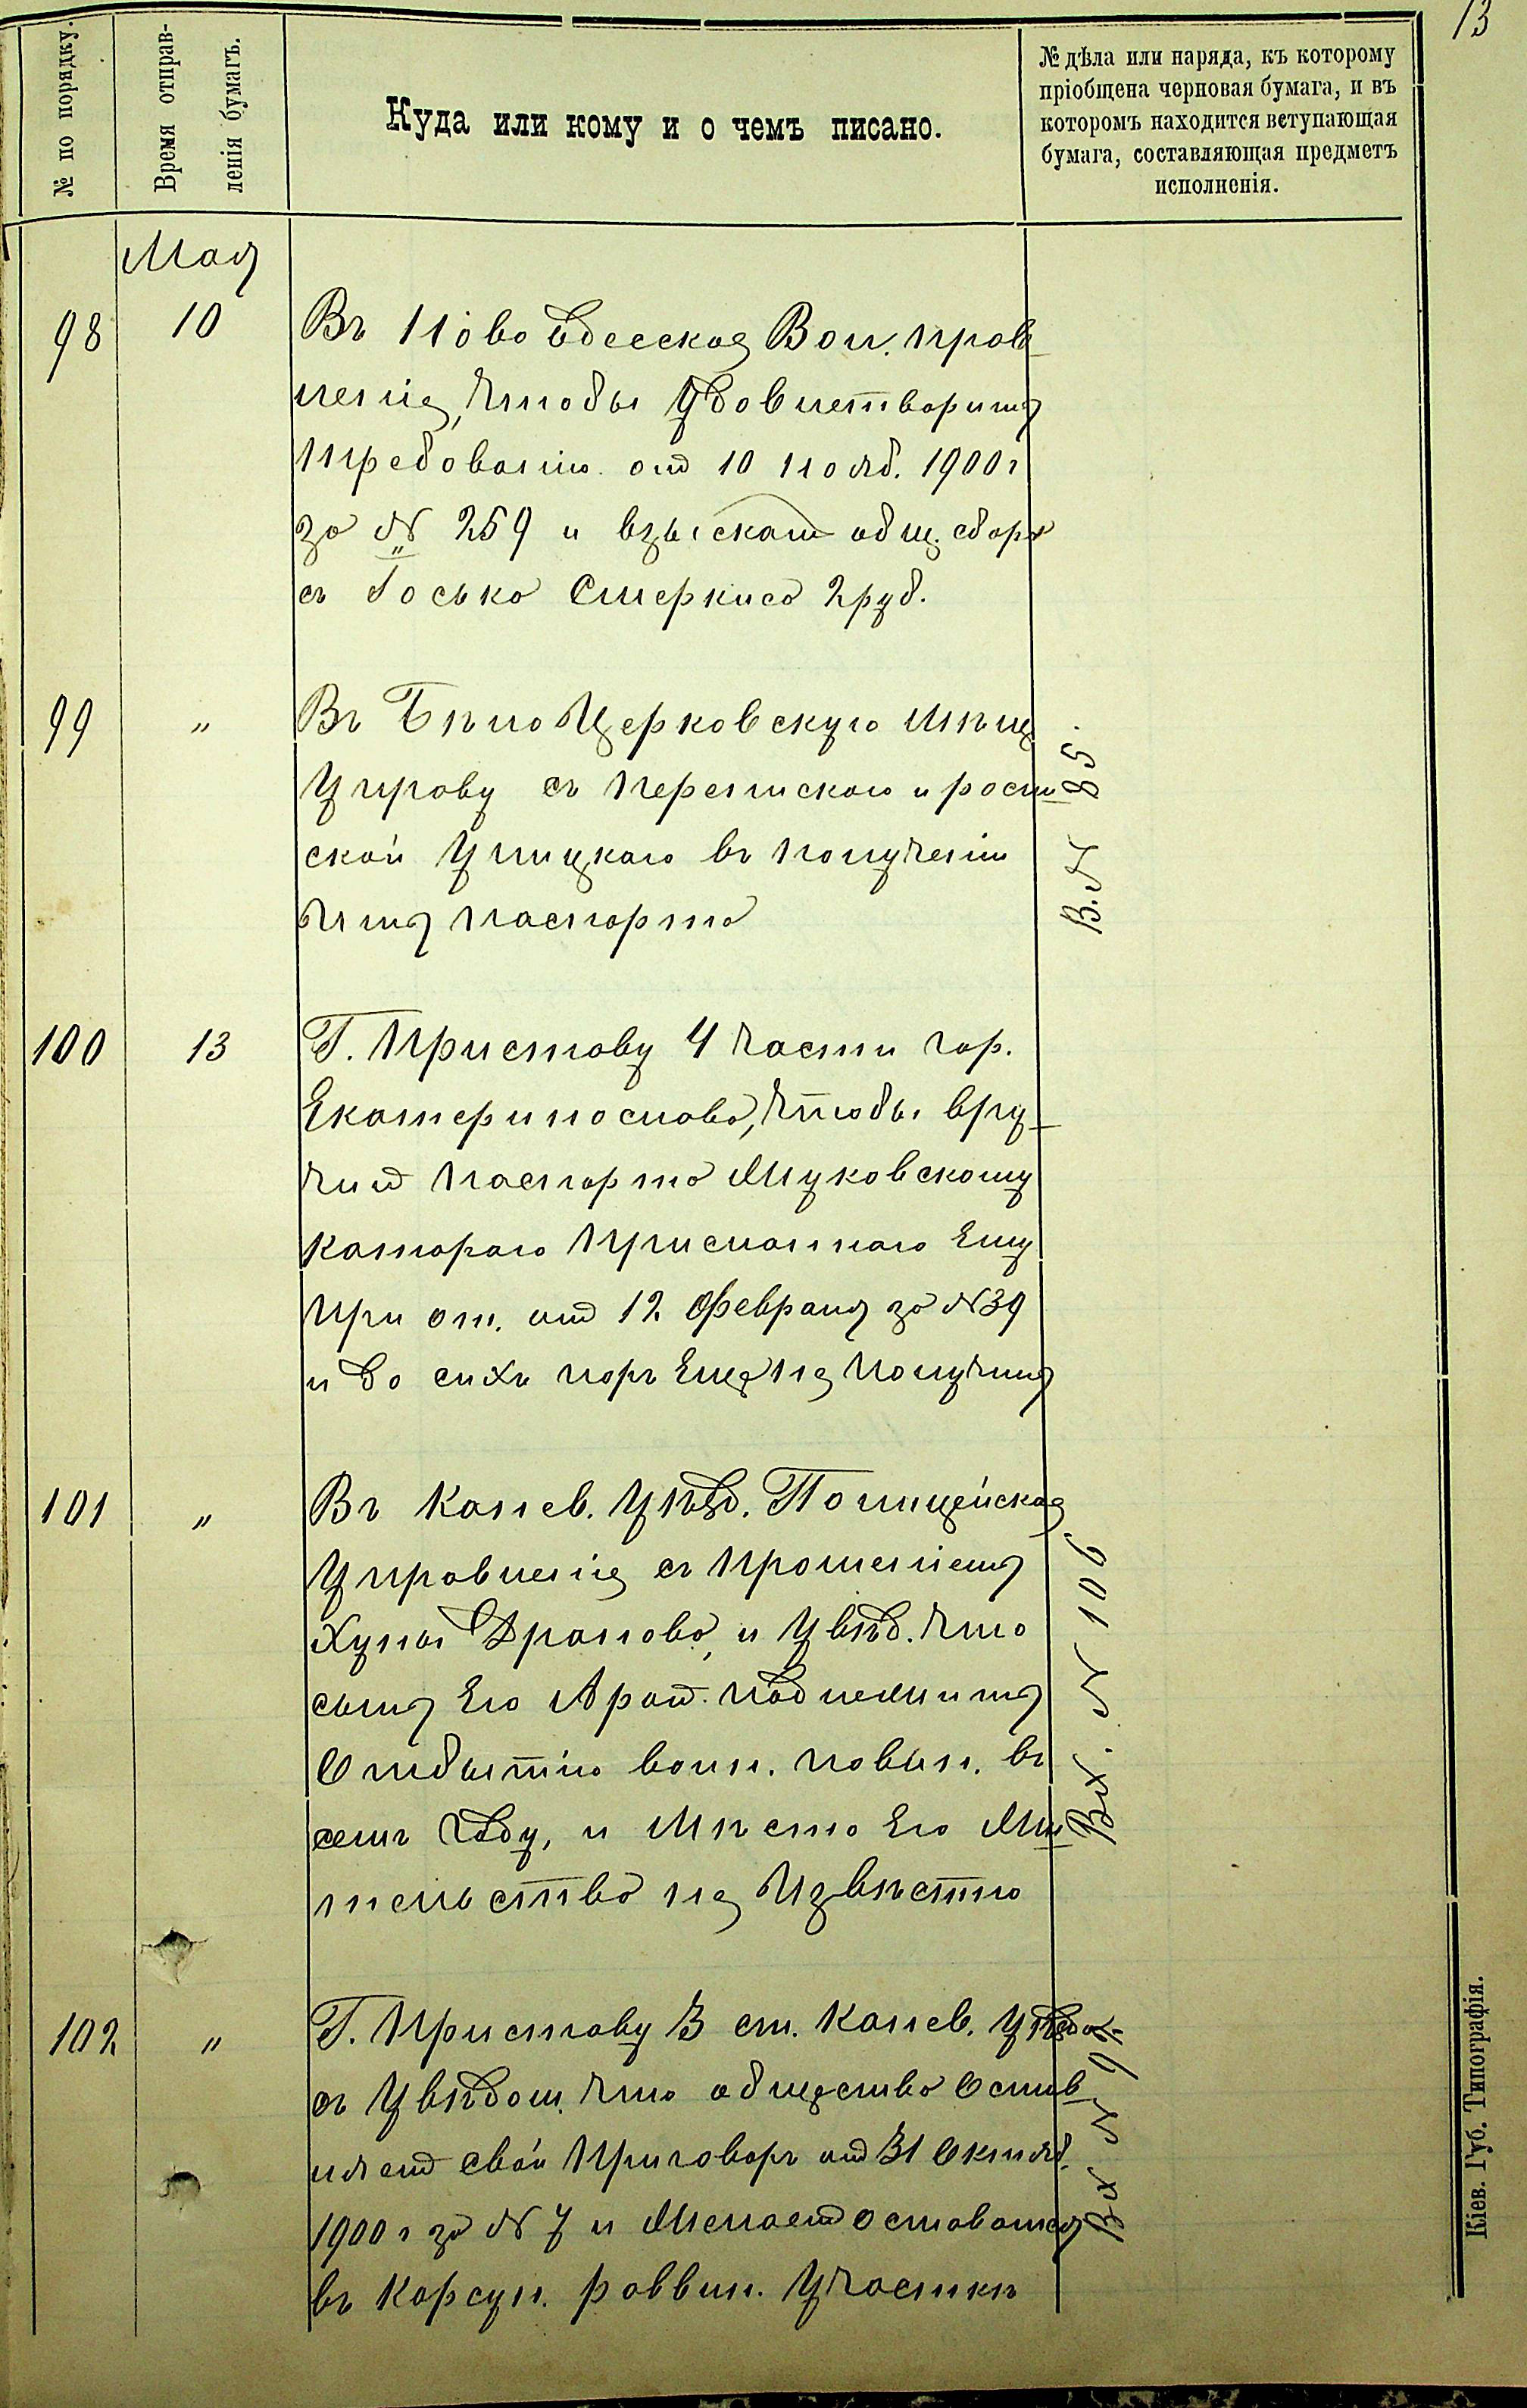 13
№ по порядку.
Время отправ-
ленія бумагъ.
Куда или кому и о чемъ писано.
№ дѣла или наряда, къ которому
пріобщена черновая бумага, и въ
которомъ находится вступающая
бумага, составляющая предметъ
исполненія.
Мая
98 10 Въ Ново Одесское Вол. прав-
леніе, чтобы удовлетворить
требованію отъ 10 нояб. 1900 г
за № 259 и взыскать общ. сборъ
съ Госька Стеркиса 2 руб.
99 " Въ Бѣло Церковскую Мѣщ
Управу съ перепискою и роспи
ской Улицкаго въ полученіи
паспорта
В. № 85.
100 13 Г. Приставу 4 части гор.
Екатеринослава, чтобы вру-
чить паспорта Жуковскому
котораго присланнаго Ему
при от. отъ 12 февраля за № 39
и до сихъ поръ Еще не получилъ
101 " Въ Канев. Уѣзд. Полицейское
Управленіе съ прошеніемъ
Хуны Дранова, и увѣд. что
сынъ Его Арон. подлежитъ
Отбытію воин. повин. въ
семъ году, и Мѣсто Его Жи
тельства не Извѣстно
Вх. № 106
102 " Г. Приставу 3 ст. Канев. Уѣзда
съ увѣдом. что общество Остав
ляетъ свой приговоръ отъ 31 Октяб.
1900 г за № 7 и Желаетъ оставаться
въ Корсун. раввин. Участкѣ
Вх № 97
Кіев. Губ. Типографія.